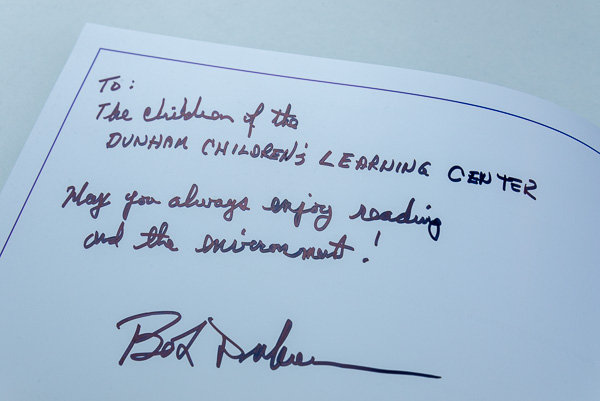 To:
The children of the
DUNHAM CHILDREN'S LEARNING CENTER
May you always enjoy reading
and the environment!
Bob